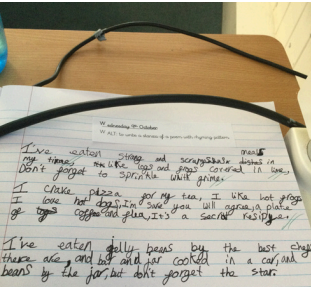 Wednesday 9th October
W ALT: to write a stanza of a poem with rhyming pattern.
I've eaten strang and meals
my time, like logs and frogs covered in
Don't forget to sprinkle white
I crave pizza for my tea, I like hot frogs
I love hot dogs, I'm sure you will agree, a plate
coffee and flea, It's a secret
I've eaten jelly beans by the best chefs
there are, and bat and jar cooked in a car, and
beans by the jar, but don't forget the star.